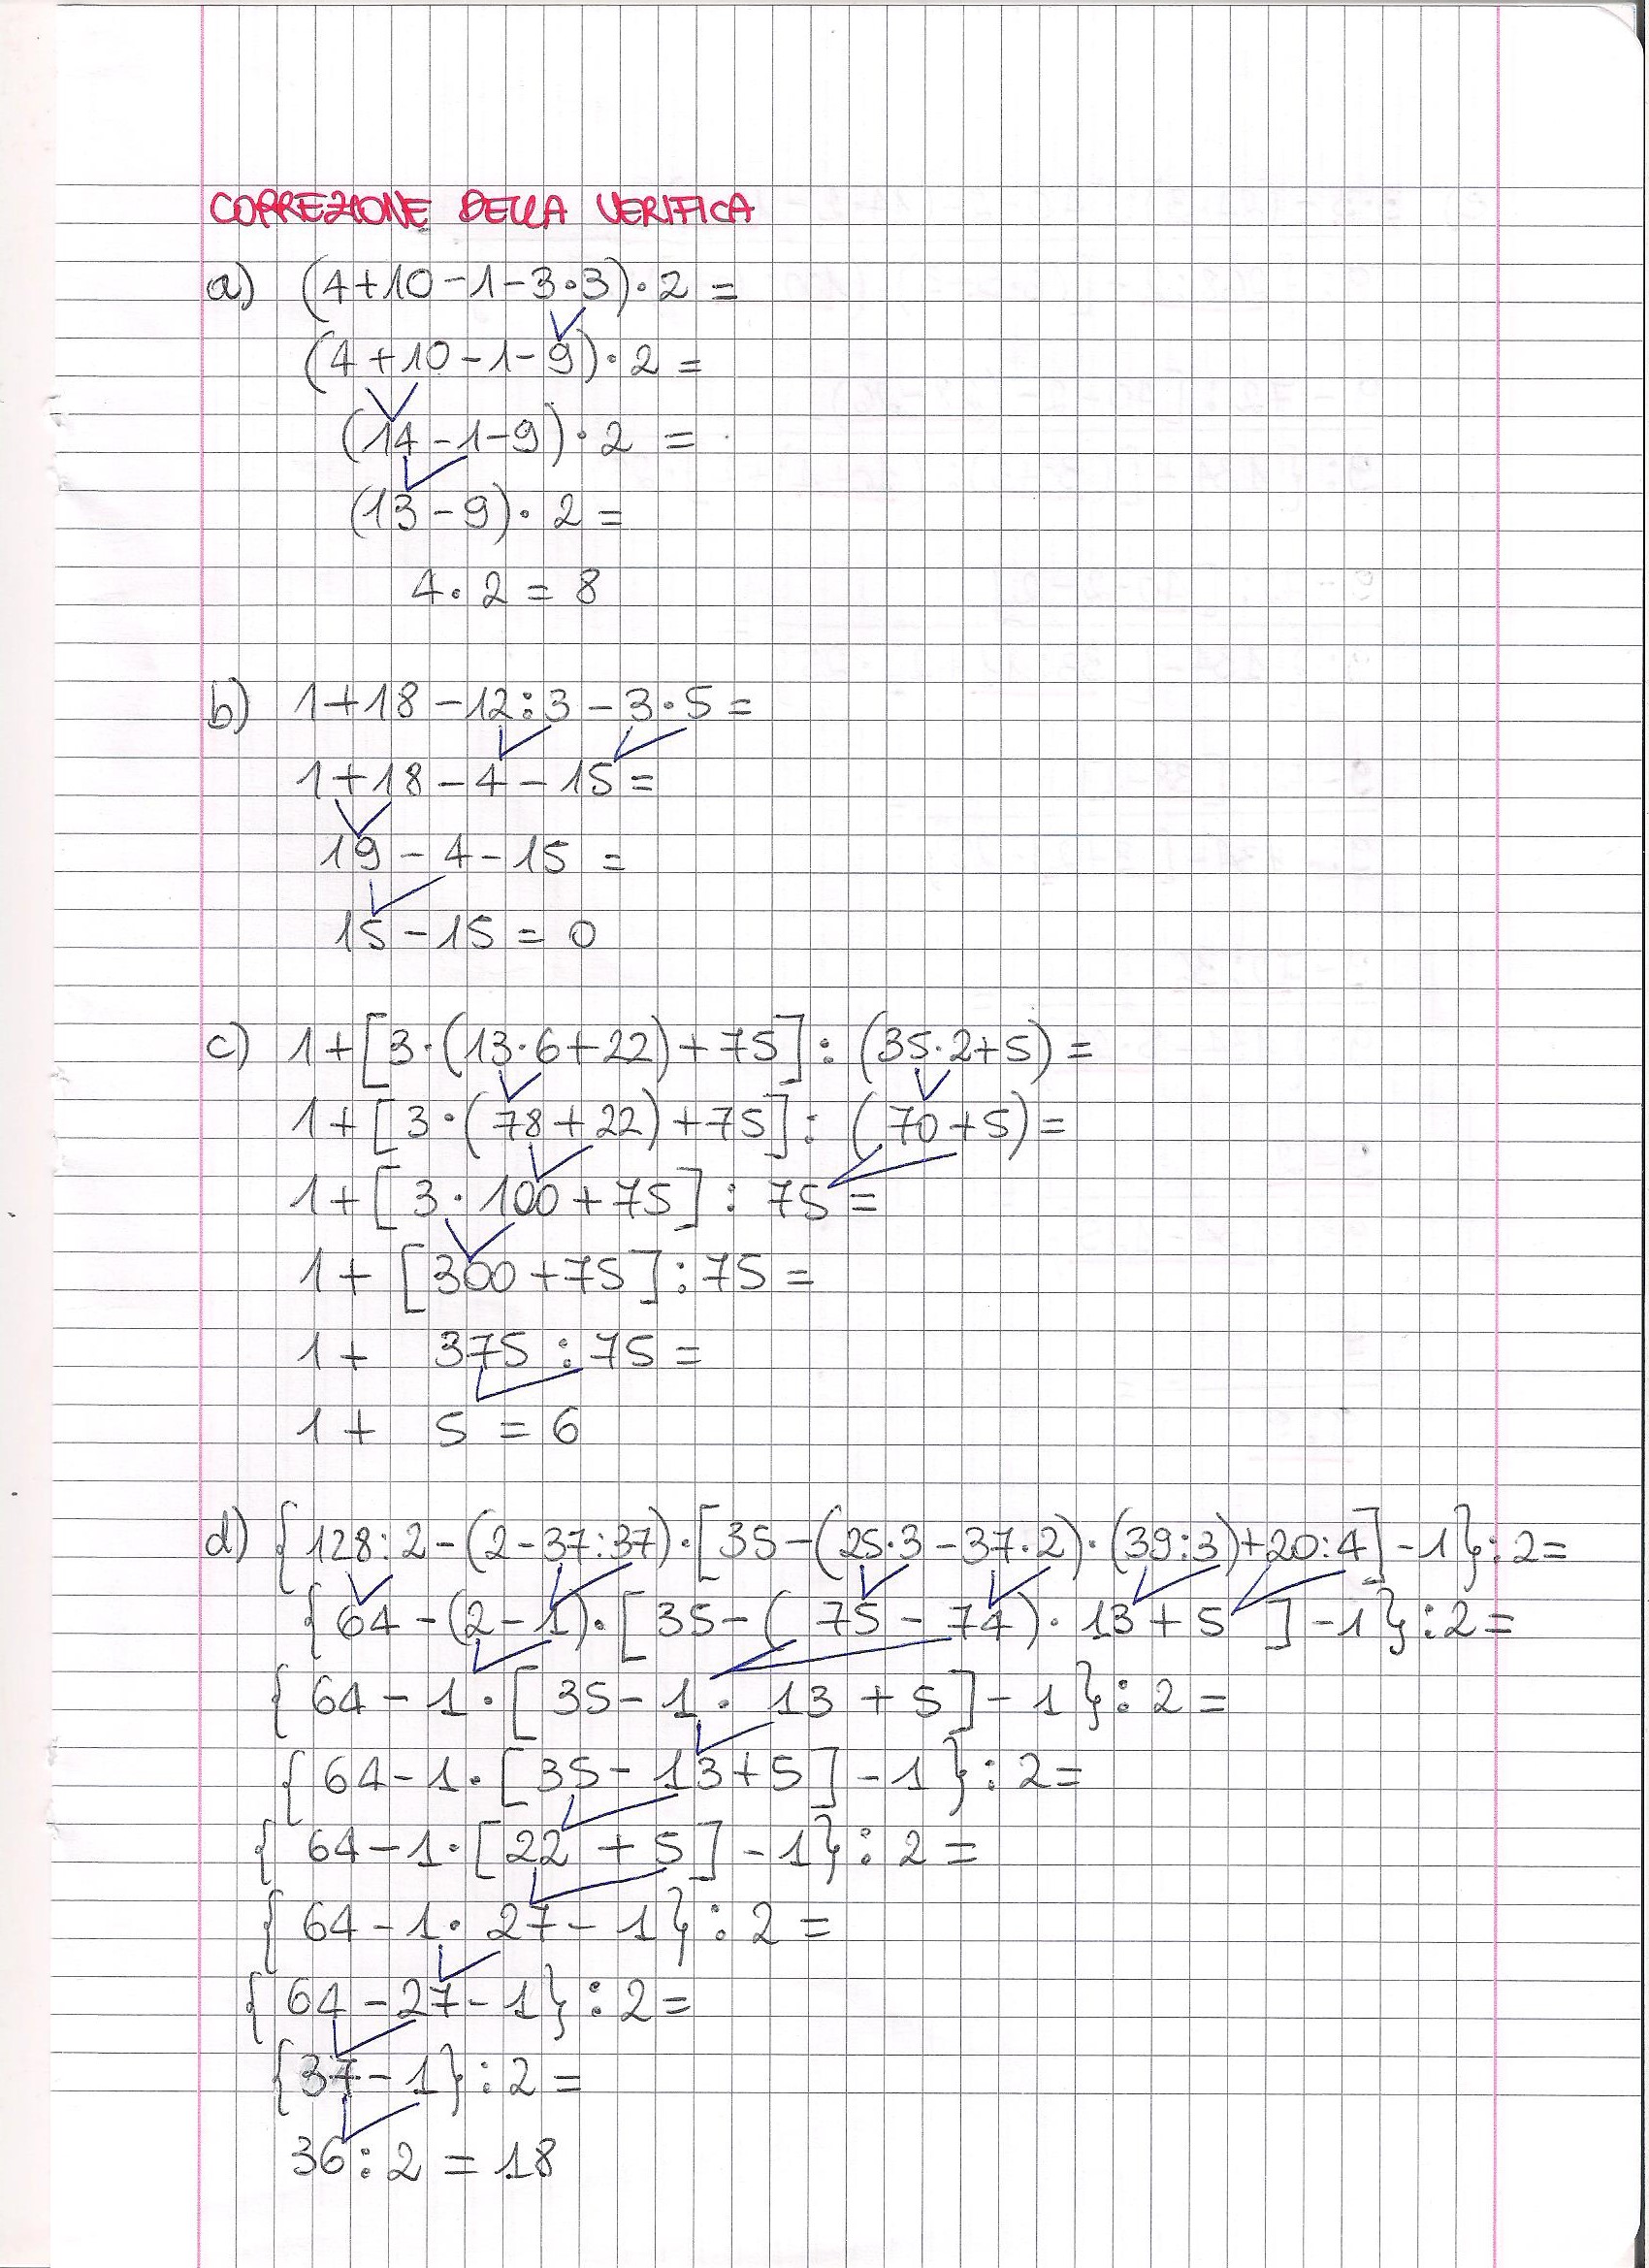 CORREZIONE DELLA VERIFICA
a) (4+10-1-3·3)·2=
(4+10-1-9)·2=
(14-1-9)·2=
(13-9)·2=
4·2=8
b) 1+18-12:3-3·5=
1+18-4-15=
19-4-15=
15-15=0
c) 1+[3·(13·6+22)+75]:(35·2+5)=
1+[3·(78+22)+75]:(70+5)=
1+[3·100+75]:75=
1+[300+75]:75=
1+ 375:75=
1+ 5=6
d) {128:2-(2-37:37)·[35-(25·3-37·2)·(39:3)+20:4]-1}:2=
{64-(2-1)·[35-(75-74)·13+5]-1}:2=
{64-1·[35-1·13+5]-1}:2=
{64-1·[35-13+5]-1}:2=
{64-1·[22+5]-1}:2=
{64-1·27-1}:2=
{64-27-1}:2=
{37-1}:2=
36:2=18